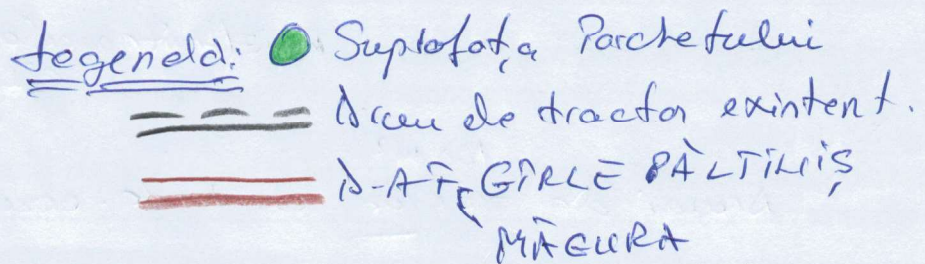 Legenda: Suprafața Parchetului
Drum de tractor existent.
D-AF, GÎRLE PĂLTINIȘ
MĂGURA